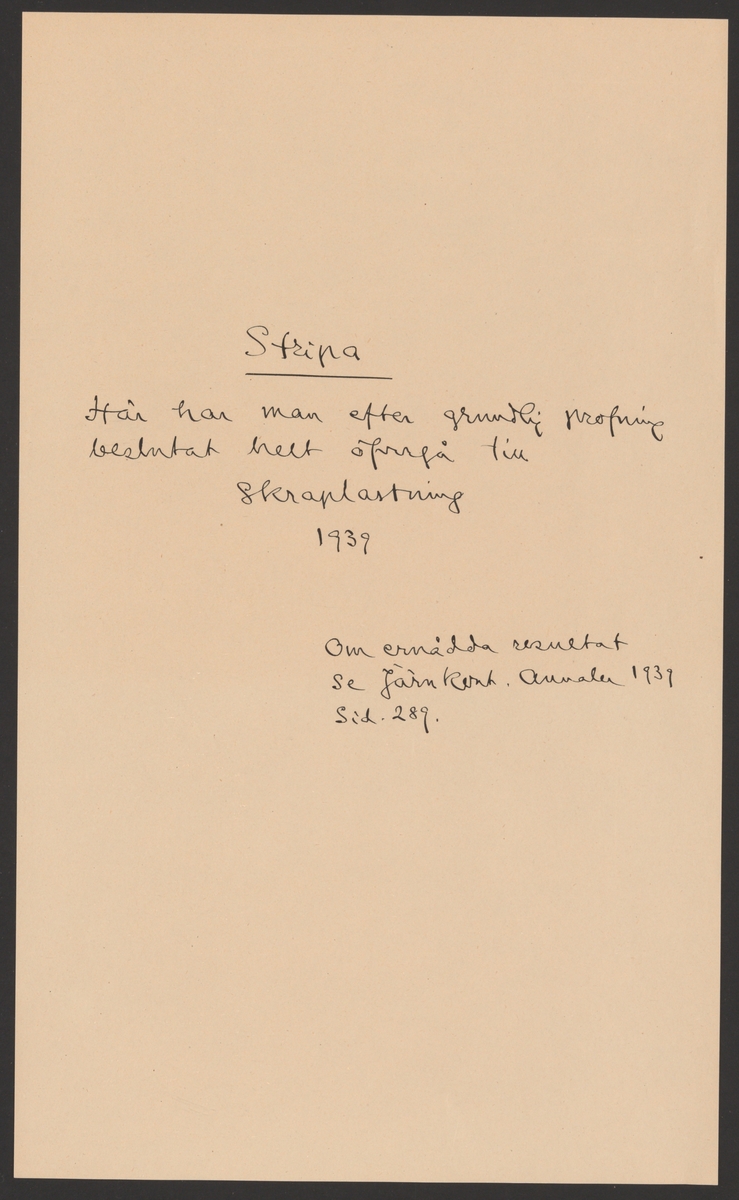 Stripa
Här har man efter grundlig profning
beslutat helt öfvergå till
Skraplastning
1939
Om ernådda resultat
se Järnkont. Annaler 1939
Sid. 289.